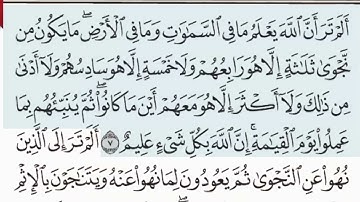 أَلَمْ تَرَ أَنَّ ٱللَّهَ يَعْلَمُ مَا فِى ٱلسَّمَٰوَٰتِ وَمَا فِى ٱلْأَرْضِ ۖ مَا يَكُونُ مِن
نَّجْوَىٰ ثَلَٰثَةٍ إِلَّا هُوَ رَابِعُهُمْ وَلَا خَمْسَةٍ إِلَّا هُوَ سَادِسُهُمْ وَلَآ أَدْنَىٰ
مِن ذَٰلِكَ وَلَآ أَكْثَرَ إِلَّا هُوَ مَعَهُمْ أَيْنَ مَا كَانُوا۟ ۖ ثُمَّ يُنَبِّئُهُم بِمَا
عَمِلُوا۟ يَوْمَ ٱلْقِيَٰمَةِ ۚ إِنَّ ٱللَّهَ بِكُلِّ شَىْءٍ عَلِيمٌ ٧ أَلَمْ تَرَ إِلَى ٱلَّذِينَ
نُهُوا۟ عَنِ ٱلنَّجْوَىٰ ثُمَّ يَعُودُونَ لِمَا نُهُوا۟ عَنْهُ وَيَتَنَٰجَوْنَ بِٱلْإِثْمِ